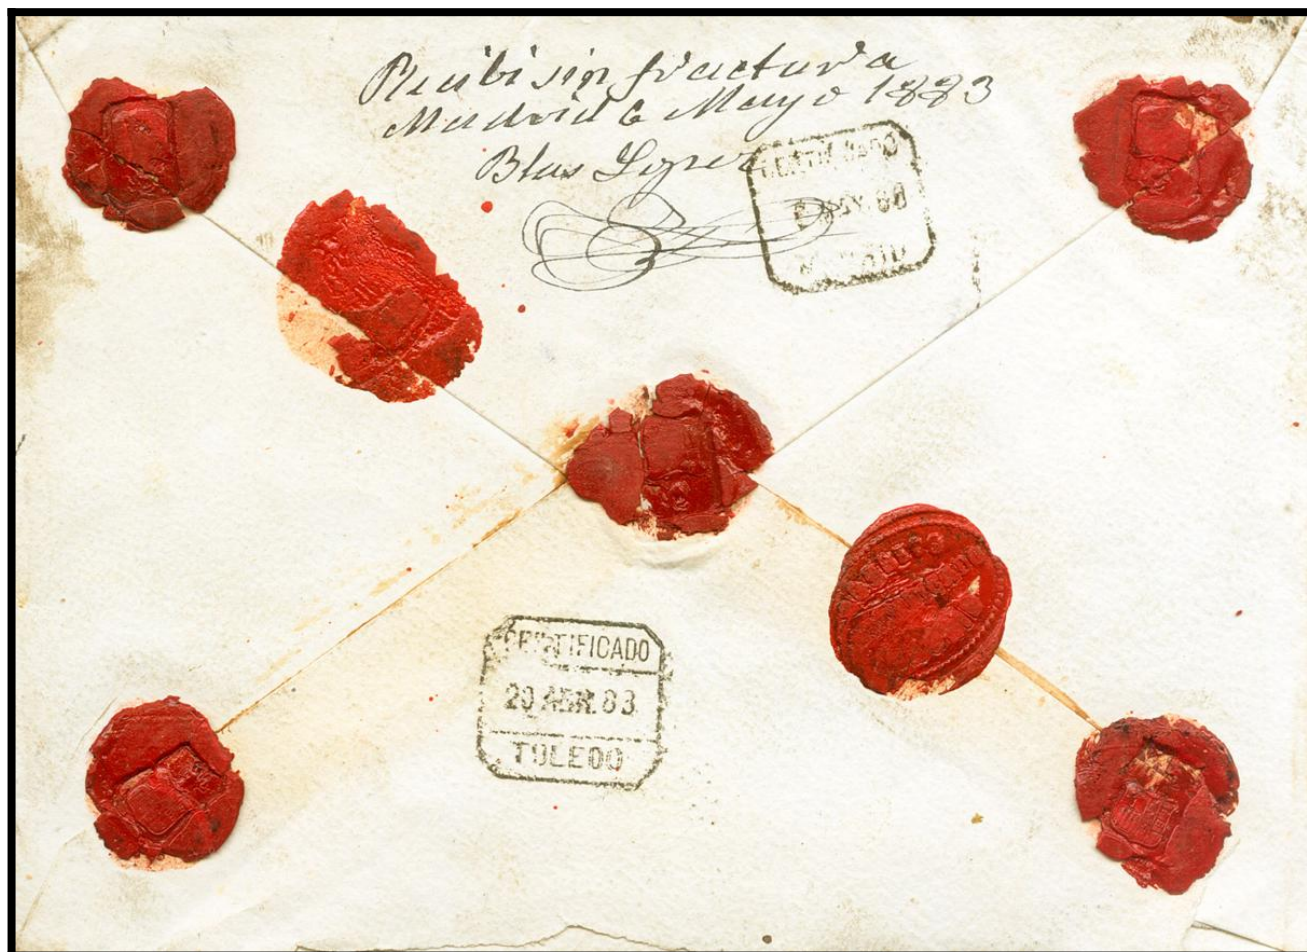 Recibi sin fractura
Madrid 6 Mayo 1883
Blas Lopez
CERTIFICADO
MADRID
CERTIFICADO
29 ABR. 83
TOLEDO